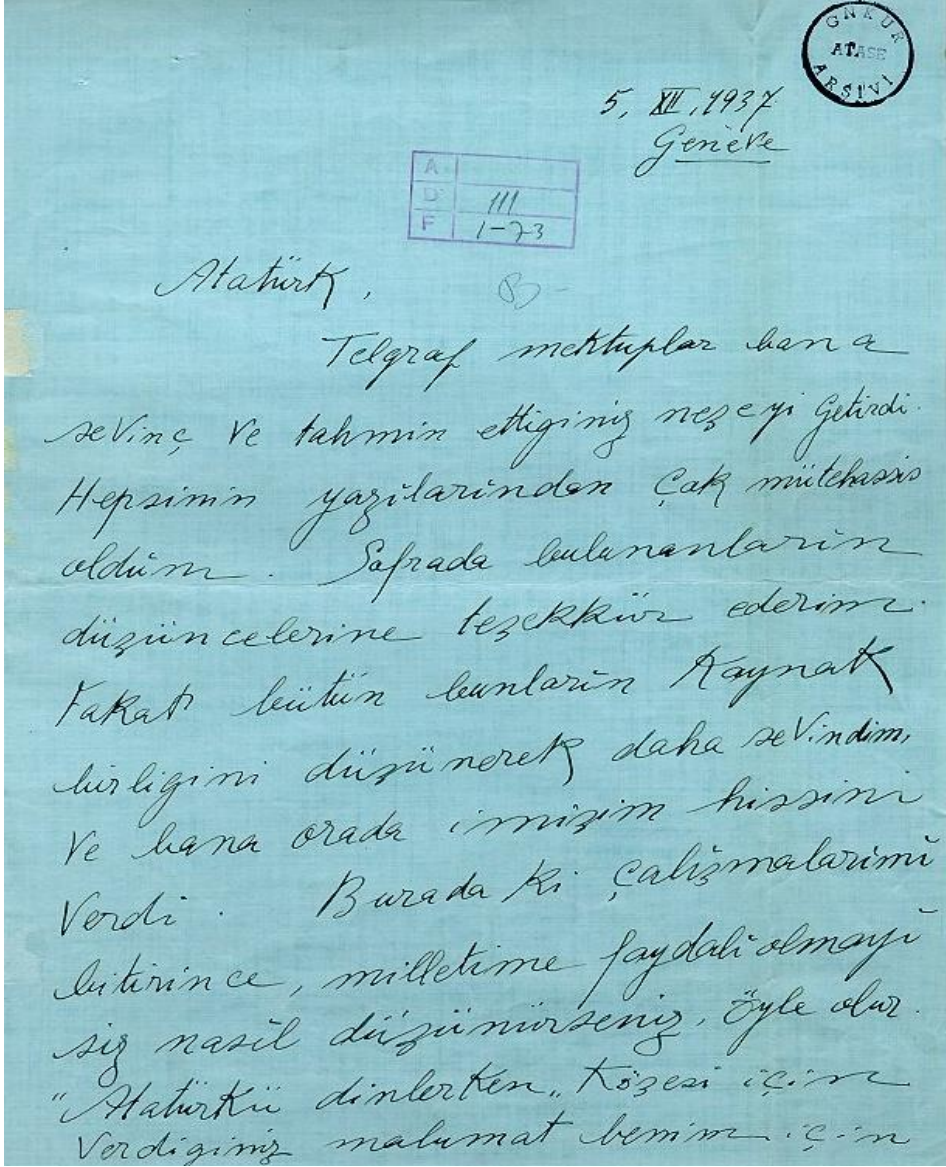 GNKUR
ATASE
ARŞİVİ
5. XII. 1937
Genève
A
D III
F 1-73
Atatürk,
Telgraf mektuplar bana
sevinç ve tahmin ettiginiz neşeyi getirdi.
Hepsinin yazilarindan çok mütehassis
oldüm. Sofrada bulunanlarin
düşüncelerine teşekkür ederim.
Fakat bütün bunlarin Kaynak
birligini düşünerek daha sevindim,
ve bana orada imişim hissini
verdi. Burada ki çalişmalarimi
bitirince, milletime faydali olmayi
siz nasil düşünürseniz, öyle olur.
"Atatürkü dinlerken„ Köşesi için
verdiginiz malumat benim için